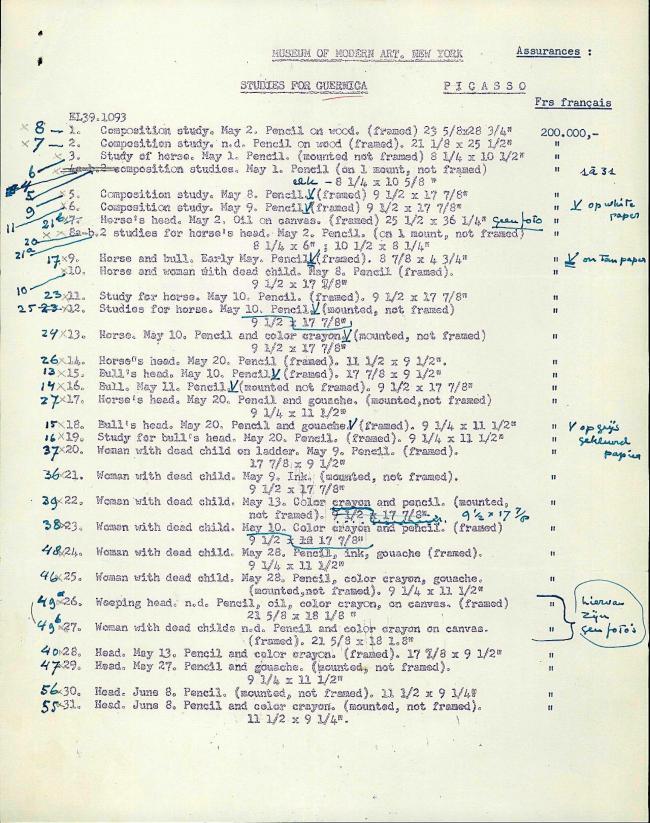 MUSEUM OF MODERN ART. NEW YORK Assurances :
STUDIES FOR GUERNICA P I C A S S O
Frs français
EL39.1093
8 — 1. Composition study. May 2. Pencil on wood. (framed) 23 5/8x28 3/4" 200.000,-
x 7 — 2. Composition study. n.d. Pencil on wood (framed). 21 1/8 x 25 1/2" "
x 3. Study of horse. May 1. Pencil. (mounted not framed) 8 1/4 x 10 1/2" "
6 composition studies. May 1. Pencil (on 1 mount, not framed) " 1 à 31
elk - 8 1/4 x 10 5/8 "
x5. Composition study. May 8. Pencil V (framed) 9 1/2 x 17 7/8" " V op white
9 x6. Composition study. May 9. Pencil V (framed) 9 1/2 x 17 7/8" " paper
11 21 7. Horse's head. May 2. Oil on canvas. (framed) 25 1/2 x 36 1/4" geen foto "
20 8a-b.2 studies for horse's head. May 2. Pencil. (on 1 mount, not framed) "
21a 8 1/4 x 6" ; 10 1/2 x 8 1/4"
17 x9. Horse and bull. Early May. Pencil V (framed). 8 7/8 x 4 3/4" " V on tan paper
x10. Horse and woman with dead child. May 8. Pencil (framed). "
10 9 1/2 x 17 7/8"
23 x11. Study for horse. May 10. Pencil. (framed). 9 1/2 x 17 7/8" "
25 23 x12. Studies for horse. May 10. Pencil V (mounted, not framed) "
9 1/2 x 17 7/8"
24 x13. Horse. May 10. Pencil and color crayon V (mounted, not framed) "
9 1/2 x 17 7/8"
26 x14. Horse"s head. May 20. Pencil (framed). 11 1/2 x 9 1/2". "
13 x15. Bull's head. May 10. Pencil V (framed). 17 7/8 x 9 1/2" "
14 x16. Bull. May 11. Pencil V (mounted not framed). 9 1/2 x 17 7/8" "
27 x17. Horse's head. May 20. Pencil and gouache. (mounted,not framed) "
9 1/4 x 11 1/2"
15 x18. Bull's head. May 20. Pencil and gouache V (framed). 9 1/4 x 11 1/2" " V op grijs
16 x19. Study for bull's head. May 20. Pencil (framed). 9 1/4 x 11 1/2" " gekleurd
37 x20. Woman with dead child on ladder. May 9. Pencil (framed). " papier
17 7/8 x 9 1/2"
36 x21. Woman with dead child. May 9. Ink. (mounted, not framed). "
9 1/2 x 17 7/8"
39 x22. Woman with dead child. May 13. Color crayon and pencil. (mounted, "
not framed). 9 1/2 x 17 7/8". 9 1/2 x 17 7/8
38 x23. Woman with dead child. May 10. Color crayon and pencil. (framed) "
9 1/2 x 17 7/8"
48 x24. Woman with dead child. May 28. Pencil, ink, gouache (framed). "
9 1/4 x 11 1/2"
46 x25. Woman with dead child. May 28. Pencil, color crayon, gouache. "
(mounted,not framed). 9 1/4 x 11 1/2"
49a x26. Weeping head. n.d. Pencil, oil, color crayon, on canvas. (framed) " hiervan
21 5/8 x 18 1/8 " zijn
49b x27. Woman with dead childs n.d. Pencil and color crayon on canvas. " geen foto's
(framed). 21 5/8 x 18 1.8"
40 x28. Head. May 13. Pencil and color crayon. (framed). 17 7/8 x 9 1/2" "
47 x29. Head. May 27. Pencil and gouache. (mounted, not framed). "
9 1/4 x 11 1/2"
56 x30. Head. June 8. Pencil. (mounted, not framed). 11 1/2 x 9 1/4" "
55 x31. Head. June 8. Pencil and color crayon. (mounted, not framed). "
11 1/2 x 9 1/4".